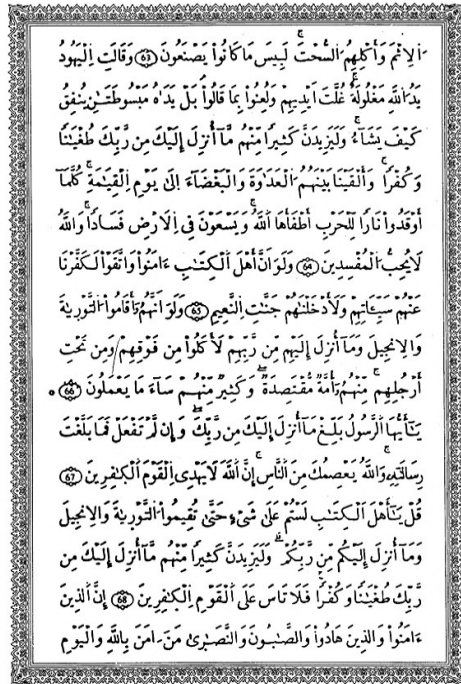 اَلِاثْمَ وَأَكْلِهِمُ السُّحْتَ لَبِيسَ مَا كَانُواْ يَصْنَعُونَ ٦٣ وَقَالَتِ اِلْيَهُودُ
يَدُ اللَّهِ مَغْلُولَةٌ غُلَّتَ اَيْدِيهِمْ وَلُعِنُواْ بِمَا قَالُواْ بَلْ يَدَاهُ مَبْسُوطَتَٰنِ يُنفِقُ
كَيْفَ يَشَآءُ وَلَيَزِيدَنَّ كَثِيرًا مِّنْهُم مَّآ أُنزِلَ إِلَيْكَ مِن رَّبِّكَ طُغْيَٰنًا
وَكُفْرًا وَأَلْقَيْنَا بَيْنَهُمُ اَلْعَدَٰوَةَ وَالْبَغْضَآءَ اِلَىٰ يَوْمِ اِلْقِيَٰمَةِ كُلَّمَآ
أَوْقَدُواْ نَارًا لِّلْحَرْبِ أَطْفَأَهَا اَللَّهُ وَيَسْعَوْنَ فِي اِلَارْضِ فَسَادًا وَاللَّهُ
لَا يُحِبُّ اُلْمُفْسِدِينَ ٦٤ وَلَوَ اَنَّ أَهْلَ اَلْكِتَٰبِ ءَامَنُواْ وَاتَّقَوْاْ لَكَفَّرْنَا
عَنْهُمْ سَيِّـَٔاتِهِمْ وَلَأَدْخَلْنَٰهُمْ جَنَّٰتِ اِلنَّعِيمِ ٦٥ وَلَوَ اَنَّهُمُۥٓ أَقَامُواْ اُلتَّوْرَىٰةَ
وَالِانجِيلَ وَمَآ أُنزِلَ إِلَيْهِم مِّن رَّبِّهِمْ لَأَكَلُواْ مِن فَوْقِهِمْ وَمِن تَحْتِ
أَرْجُلِهِم مِّنْهُمُۥٓ أُمَّةٌ مُّقْتَصِدَةٌ وَكَثِيرٌ مِّنْهُمْ سَآءَ مَا يَعْمَلُونَ ٦٦
يَٰٓأَيُّهَا اَلرَّسُولُ بَلِّغْ مَآ أُنزِلَ إِلَيْكَ مِن رَّبِّكَ وَإِن لَّمْ تَفْعَلْ فَمَا بَلَّغْتَ
رِسَالَٰتِهِۦ وَاللَّهُ يَعْصِمُكَ مِنَ اَلنَّاسِ إِنَّ اَللَّهَ لَا يَهْدِي اِلْقَوْمَ اَلْكٰفِرِينَ ٦٧
قُلْ يَٰٓأَهْلَ اَلْكِتَٰبِ لَسْتُمْ عَلَىٰ شَيْءٍ حَتَّىٰ تُقِيمُواْ اُلتَّوْرَىٰةَ وَالِانجِيلَ
وَمَآ أُنزِلَ إِلَيْكُم مِّن رَّبِّكُمْ وَلَيَزِيدَنَّ كَثِيرًا مِّنْهُم مَّآ أُنزِلَ إِلَيْكَ مِن
رَّبِّكَ طُغْيَٰنًا وَكُفْرًا فَلَا تَاسَ عَلَى اَلْقَوْمِ اِلْكٰفِرِينَ ٦٨ إِنَّ اَلذِينَ
ءَامَنُواْ وَالذِينَ هَادُواْ وَالصَّٰبُونَ وَالنَّصَٰرَىٰ مَنَ ـامَنَ بِاللَّهِ وَالْيَوْمِ